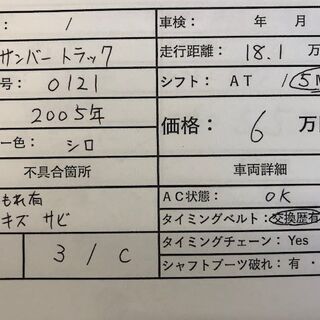 : / 車検: 年 月
サンバートラック 走行距離: 18.1 万
号: 0121 シフト: AT / 5M
2005年 価格: 6 万
ー色: シロ
不具合箇所 車両詳細
もれ有 AC状態: OK
キズ サビ タイミングベルト: 交換歴有
3 / C タイミングチェーン: Yes
シャフトブーツ破れ: 有・